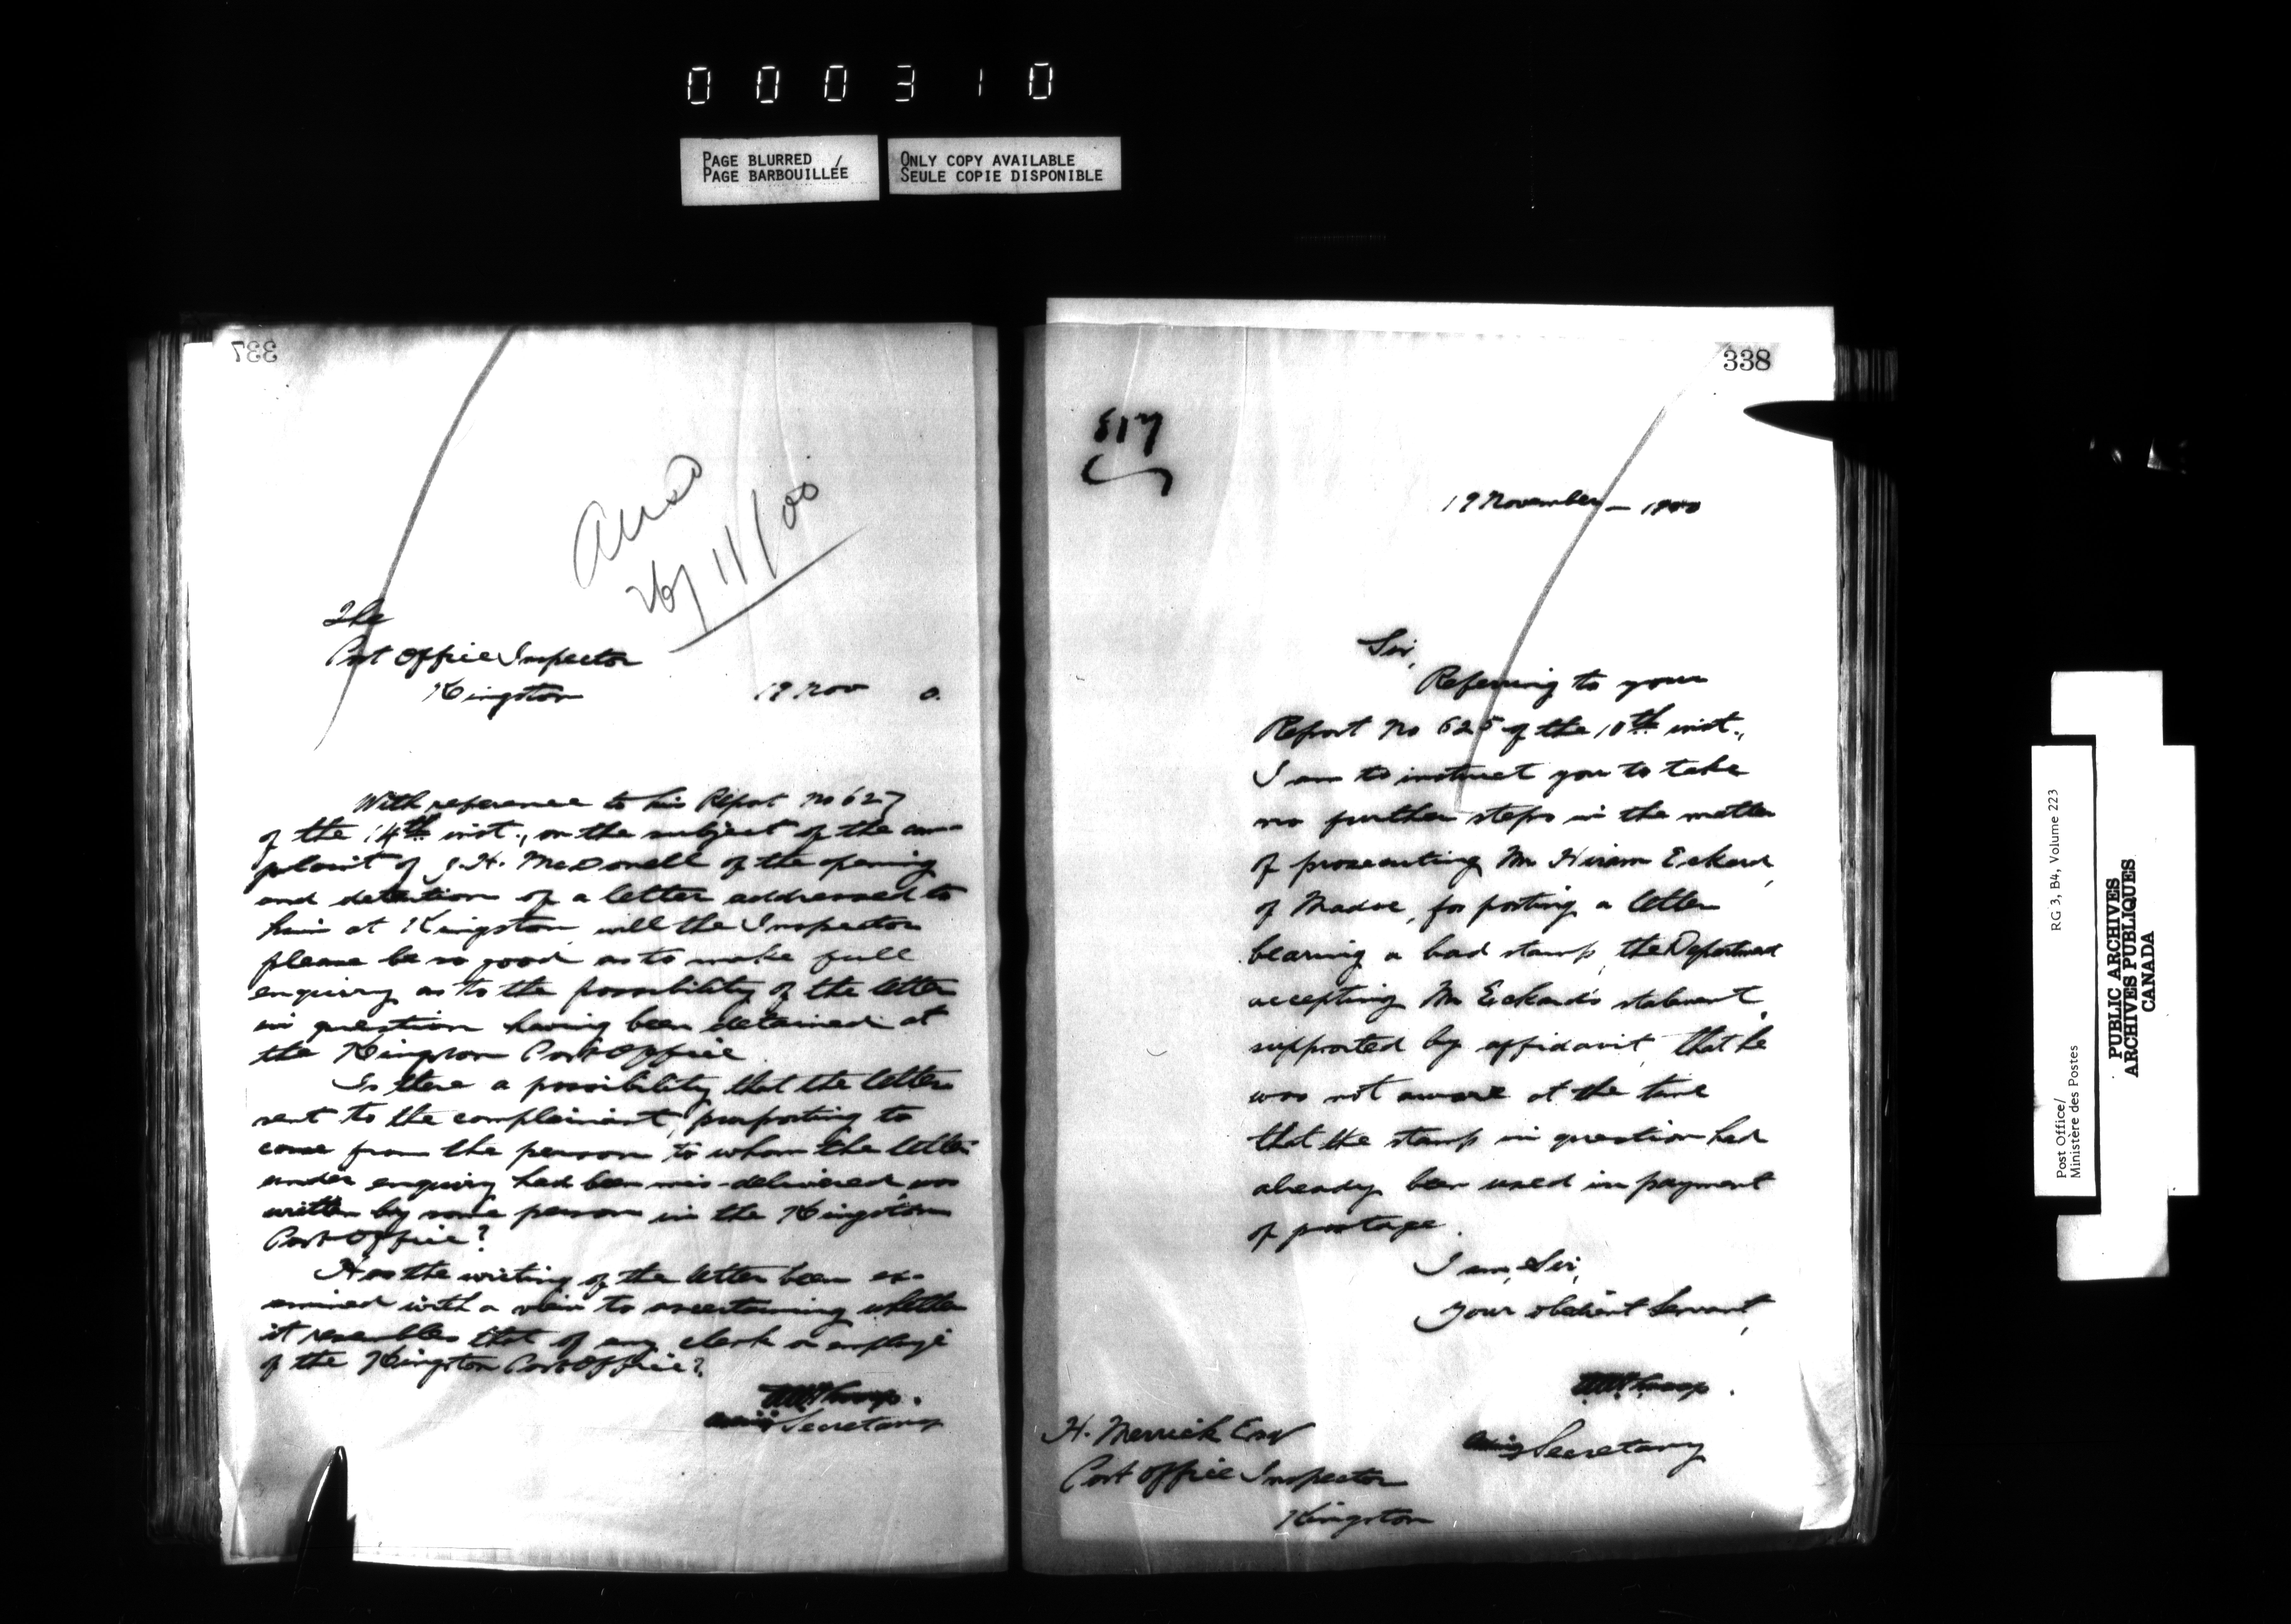 000310
PAGE BLURRED /
PAGE BARBOUILLÉE
ONLY COPY AVAILABLE
SEULE COPIE DISPONIBLE
337
Ansd
26/11/00
The
Post Office Inspector
Kingston 19 Nov 0.
With reference to his Report No 627
of the 14th inst., on the subject of the com-
plaint of J. H. McDonell of the opening
and detention of a letter addressed to
him at Kingston, will the Inspector
please be so good as to make full
enquiry as to the possibility of the letter
in question having been detained at
the Kingston Post Office.
Is there a possibility that the letter
sent to the complainant, purporting to
come from the person to whom the letter
under enquiry had been mis-delivered, was
written by some person in the Kingston
Post Office?
Has the writing of the letter been ex-
amined with a view to ascertaining whether
it resembles that of any clerk or employé
of the Kingston Post Office?
Secretary
338
817
19 November — 1900
Sir,
Referring to your
Report No 625 of the 10th inst.,
I am to instruct you to take
no further steps in the matter
of prosecuting Mr Hiram Eckard,
of Madoc, for posting a letter
bearing a bad stamp, the Department
accepting Mr Eckard's statement,
supported by affidavit, that he
was not aware at the time
that the stamp in question had
already been used in payment
of postage.
I am, Sir,
Your obedient Servant,
Acting Secretary
H. Merrick Esq
Post Office Inspector
Kingston
Post Office/
Ministère des Postes
RG 3, B4, Volume 223
PUBLIC ARCHIVES
ARCHIVES PUBLIQUES
CANADA